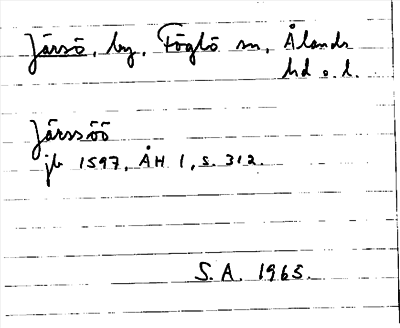 Järsö, by, Föglö sn, Ålands
hd o. l.
Järssöö
jb 1597, ÅH 1, s. 312.
S.A. 1965.